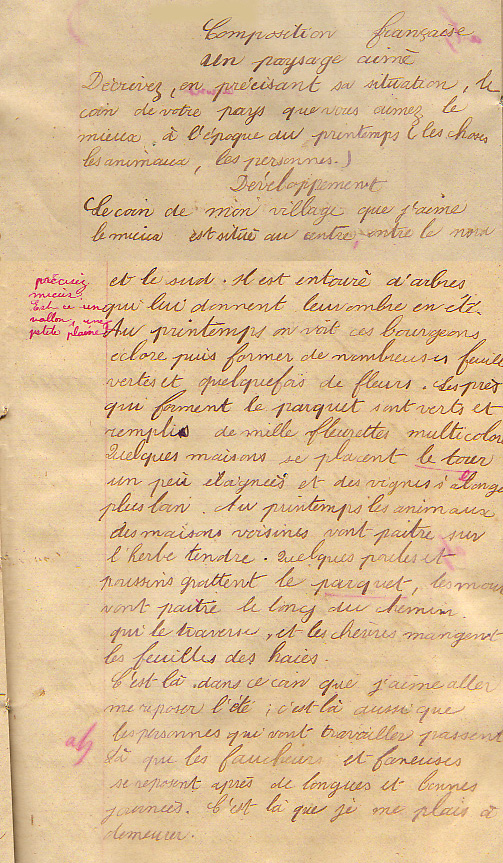 Composition française
Un paysage aimé
Décrivez, en précisant sa situation, le
coin de votre pays que vous aimez le
mieux, à l'époque du printemps (les choses
les animaux, les personnes.)
Développement
Le coin de mon village que j'aime
le mieux est situé au centre, entre le nord
précisez
mieux.
Est-ce un
vallon, une
petite plaine?
et le sud. Il est entouré d'arbres
qui lui donnent leur ombre en été.
Au printemps on voit ces bourgeons
éclore puis former de nombreuses feuille
vertes et quelquefois de fleurs. Les prés
qui forment le parquet sont verts et
remplis de mille fleurettes multicolore
Quelques maisons se placent le tour
un peu élagnées et des vignes s'allonge
plus loin. Au printemps les animaux
des maisons voisines vont paître sur
l'herbe tendre. Quelques poules et
poussins grattent le parquet, les mou
vont paître le long du chemin
qui le traverse, et les chèvres mangent
les feuilles des haies.
C'est là dans ce coin que j'aime aller
me reposer l'été ; c'est là aussi que
les personnes qui vont travailler passent
là que les faucheurs et faneuses
se reposent après de longues et bonnes
journées. C'est là que je me plais à
demeurer.